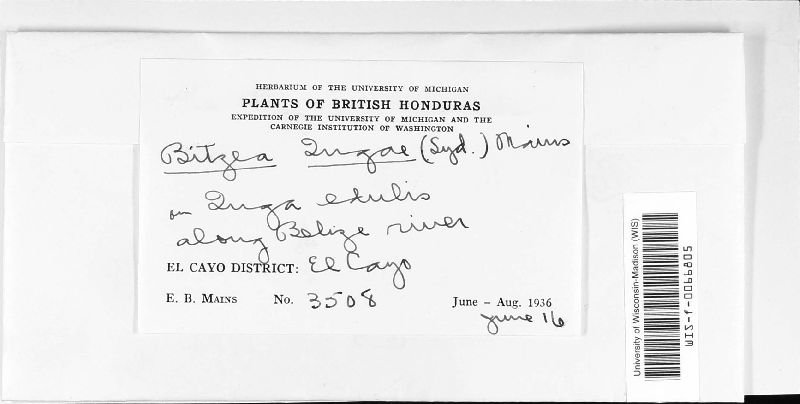 HERBARIUM OF THE UNIVERSITY OF MICHIGAN
PLANTS OF BRITISH HONDURAS
EXPEDITION OF THE UNIVERSITY OF MICHIGAN AND THE
CARNEGIE INSTITUTION OF WASHINGTON
Bitzea Ingae (Syd.) Mains
on Inga edulis
along Belize river
EL CAYO DISTRICT: El Cayo
E. B. MAINS No. 3508 June – Aug. 1936
June 16
University of Wisconsin-Madison (WIS)
WIS-f-0066805